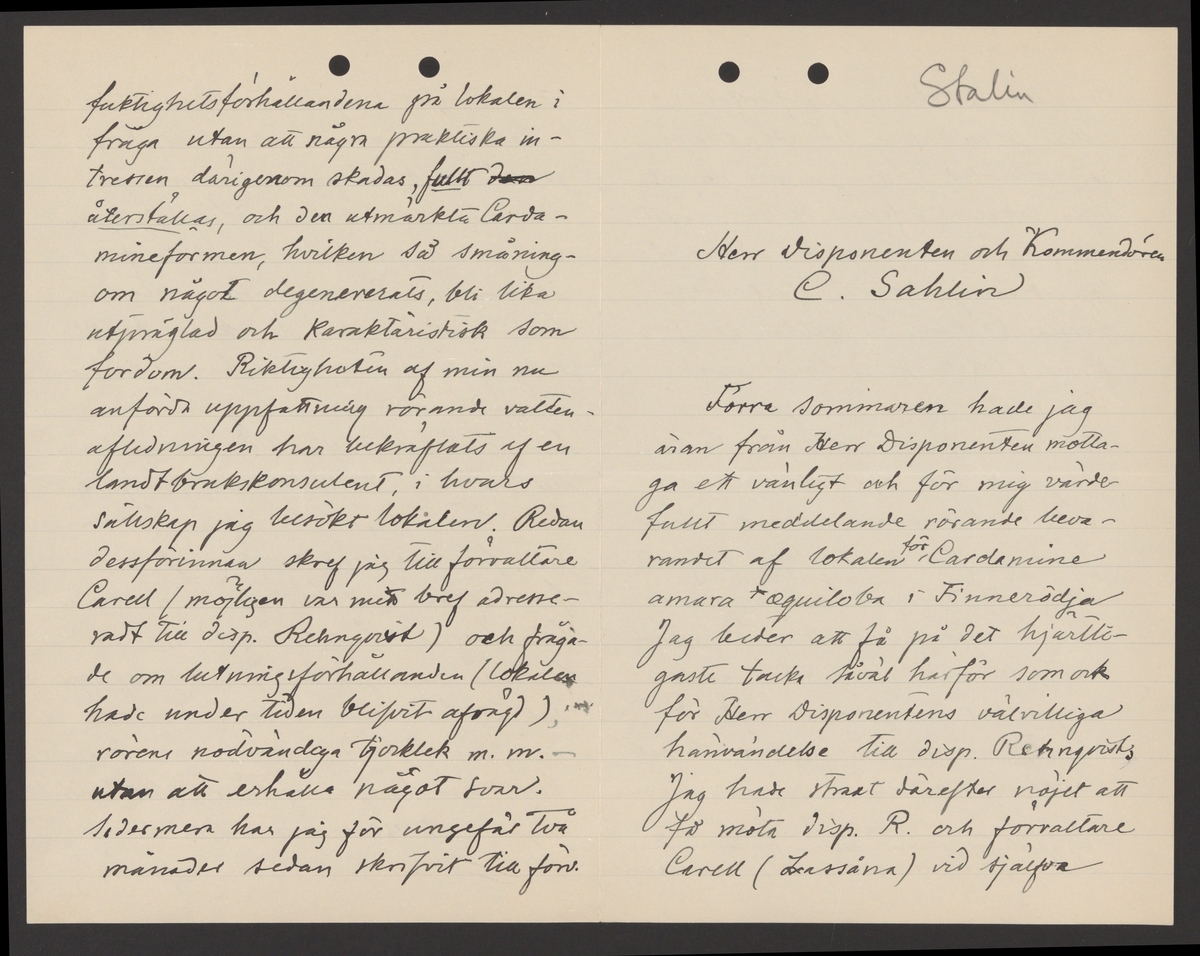 fuktighetsförhållandena på lokalen i
fråga utan att några praktiska in-
tressen därigenom skadas, fullt den
återställas, och den utmärkta Carda-
mineformen, hvilken så småning-
om något degenererats, bli lika
utpräglad och karaktäristisk som
fordom. Riktigheten af min nu
anförda uppfattning rörande vatten-
afledningen har bekräftats af en
landtbrukskonsulent, i hvars
sällskap jag besökt lokalen. Redan
dessförinnan skref jag till förvaltare
Carell (möjligen var mitt bref adresse-
radt till disp. Rehnqvist) och fråga-
de om lutningsförhållanden (lokalen
hade under tiden blifvit afvägd),
rörens nödvändiga tjocklek m. m. -
utan att erhålla något svar.
Sedermera har jag för ungefär två
månader sedan skrifvit till förv.
Stalin
Herr Disponenten och Kommendören
C. Sahlin
Förra sommaren hade jag
äran från Herr Disponenten motta-
ga ett vänligt och för mig värde-
fullt meddelande rörande beva-
randet af lokalen för Cardamine
amara * æquiloba i Finnerödja
Jag beder att få på det hjärtli-
gaste tacka såväl härför som ock
för Herr Disponentens välvilliga
hänvändelse till disp. Rehnqvist.
Jag hade straxt därefter nöjet att
få möta disp. R. och förvaltare
Carell (Lassåna) vid själfva